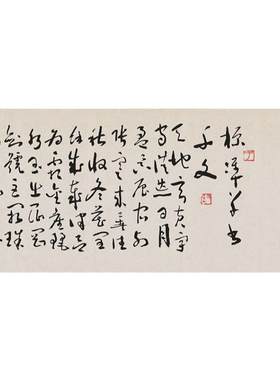 標準草書
千文
天地玄黃宇
宙洪荒日月
盈昃辰宿列
張寒來暑往
秋收冬藏閏
餘成歲律
為霜金生麗
水玉出崑岡
劍號巨闕珠